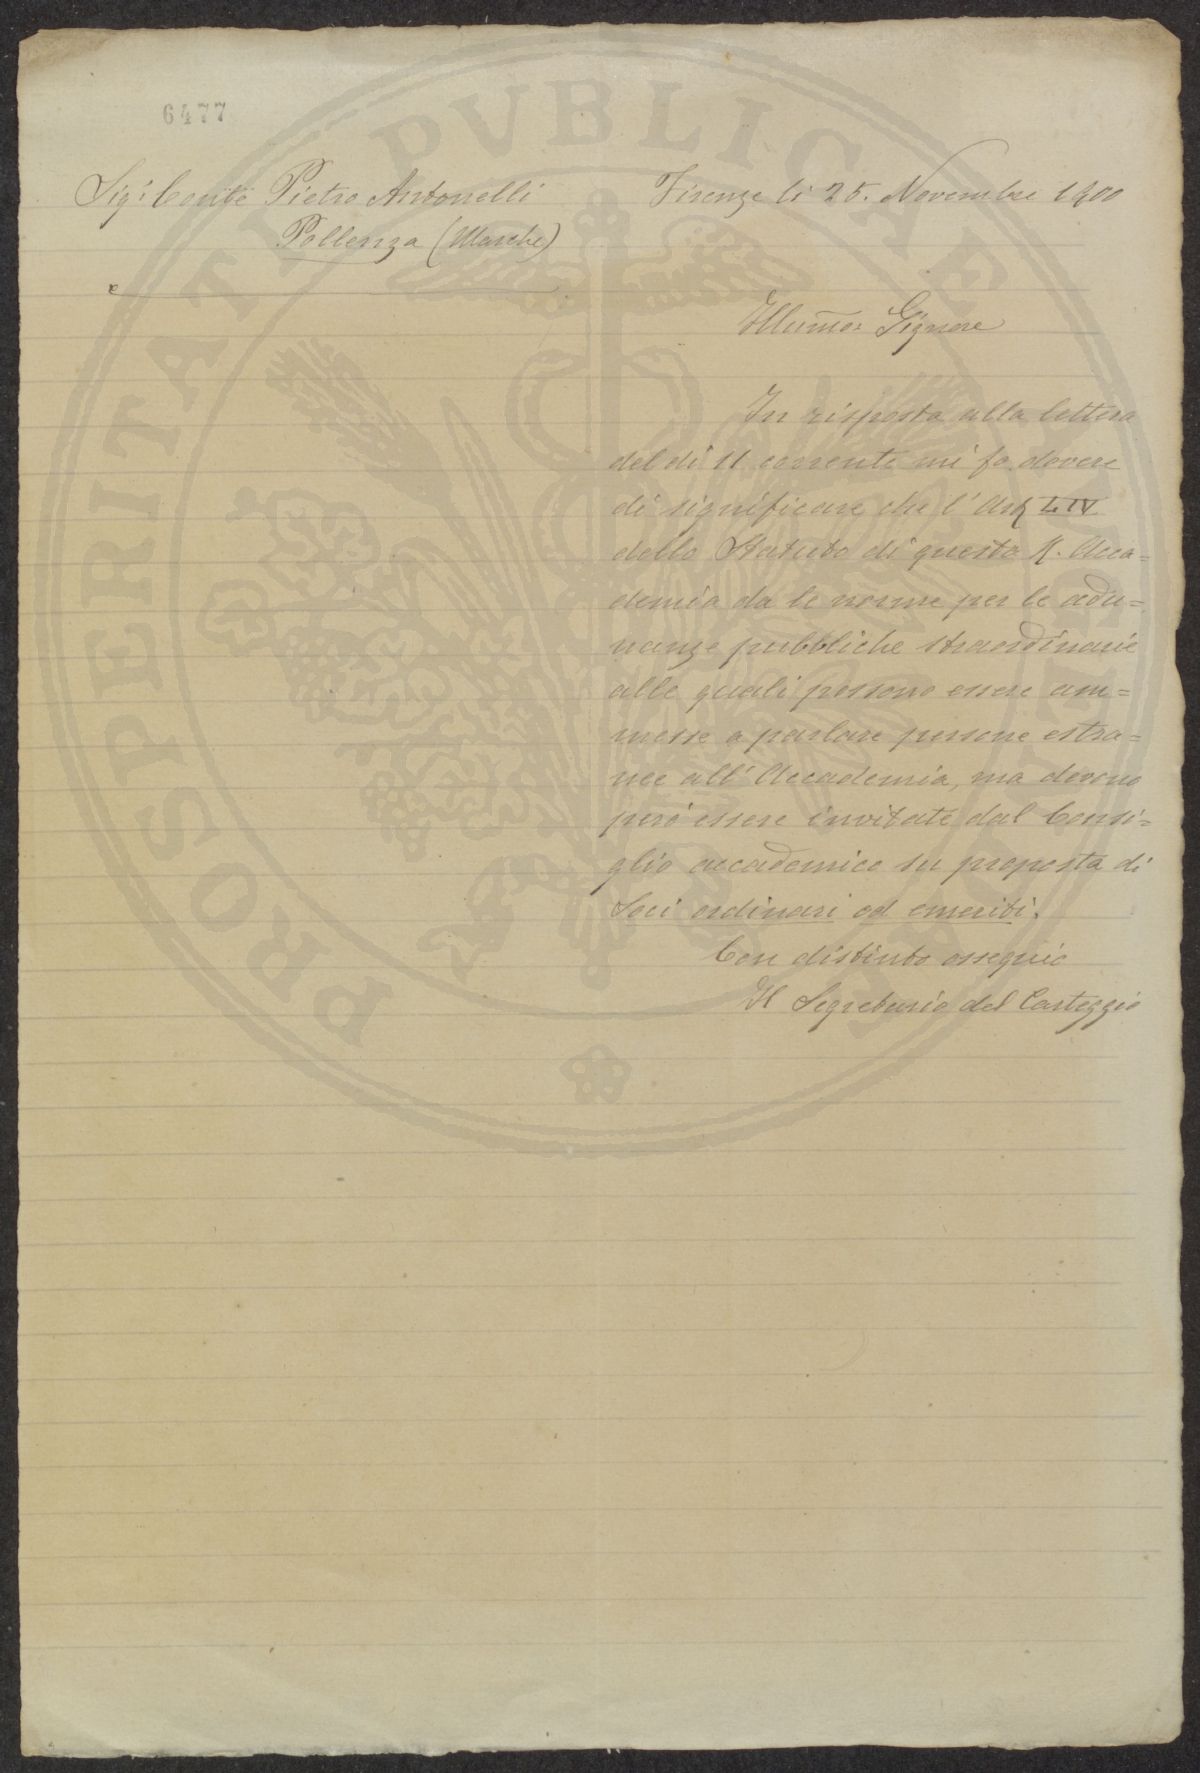 6477
Sigʳ: Conte Pietro Antonelli
Pollenza (Marche)
Firenze li 25. Novembre 1900
Illumo: Signore
In risposta alla lettera
del di 11 corrente mi fo dovere
di significare che l'Art LIV
dello Statuto di questa R. Acca=
demia da le norme per le adu=
nanze pubbliche straordinarie
alle quali possono essere am=
messe a parlare persone estra=
nee all'Accademia, ma devono
però essere invitate dal Consi=
glio accademico su proposta di
Soci ordinari od emeriti.
Con distinto ossequio
Il Segretario del Carteggio
PROSPERITATI PVBLICAE AVGENDAE